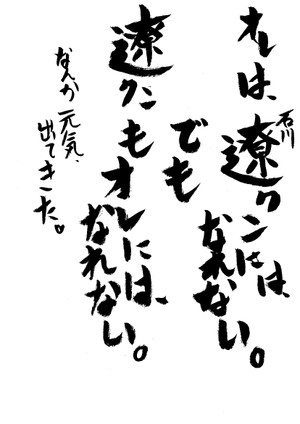 オレは、石川遼クンには、なれない。
でも
遼クンもオレには、なれない。
なんか元気、
出てきた。